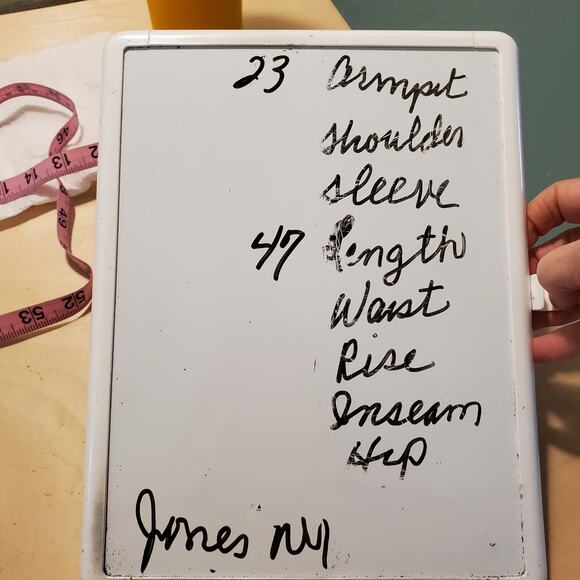 23 Armpit
Shoulder
Sleeve
47 Length
Waist
Rise
Inseam
Hip
Jones NY
46
13
12
14
1
49
53
52